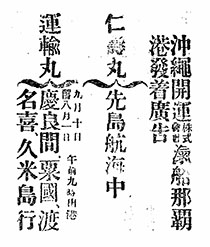 沖繩開運株式會社滊船那覇
港發着廣告
仁壽丸 先島航海中
運輸丸
九月十日
舊八月一日
午前九時出港
慶良間、粟國、渡
名喜、久米島行